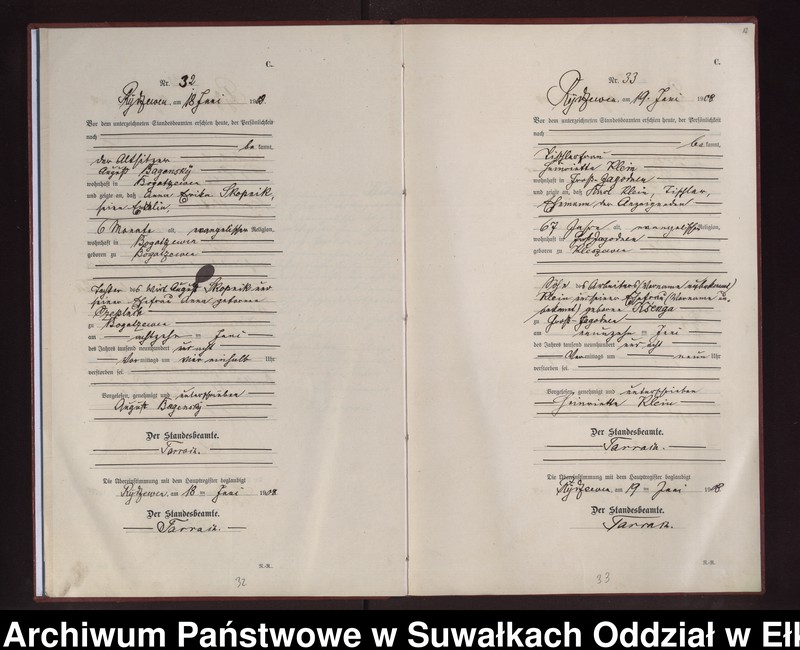 C.
Nr. 32
Rydzewen, am 18 Juni 1908.
Vor dem unterzeichneten Standesbeamten erschien heute, der Persönlichkeit
nach
be kannt,
der Altsitzer
August Bagensky
wohnhaft in Bogatzewen
und zeigte an, daß Anna Erika Skopnik,
seine Enkelin,
6 Monate alt, evangelischer Religion,
wohnhaft in Bogatzewen
geboren zu Bogatzewen
Tochter des Wirt August Skopnik und
seiner Ehefrau Anna geborene
zu Bogatzewen
am achtzehn ten Juni
des Jahres tausend neunhundert und acht
Vor mittags um vier einhalb Uhr
verstorben sei
Vorgelesen, genehmigt und unterschrieben
August Bagensky
Der Standesbeamte.
Die Übereinstimmung mit dem Hauptregister beglaubigt
Rydzewen, am 18 ten Juni 1908.
Der Standesbeamte.
32
C.
Nr. 33
Rydzewen, am 19. Juni 1908
Vor dem unterzeichneten Standesbeamten erschien heute, der Persönlichkeit
nach
be kannt,
Tischlerfrau
Henriette Klein
wohnhaft in Groß-Jagodnen
und zeigte an, daß Karl Klein, Tischler,
Ehemann der Anzeigenden
67 Jahre alt, evangelischer Religion,
wohnhaft in Groß Jagodnen
geboren zu
Sohn des Arbeiters (Vorname unbekannt)
Klein und seiner Ehefrau (Vorname un-
bekannt) geborene Ksenga
zu Groß-Jagodnen
am neunzehn ten Juni
des Jahres tausend neunhundert und acht
Vor mittags um neun Uhr
verstorben sei
Vorgelesen, genehmigt und unterschrieben
Henriette Klein
Der Standesbeamte.
Die Übereinstimmung mit dem Hauptregister beglaubigt
Rydzewen, am 19 ten Juni 1908
Der Standesbeamte.
33
Archiwum Państwowe w Suwałkach Oddział w Ełk